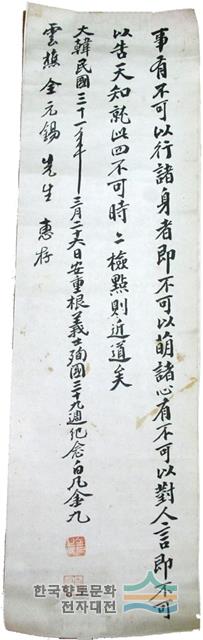 事有不可以行諸身者即不可以萌諸心有不可以對人言即不可
以告天知就此四不可時二檢點則近道矣
大韓民國三十一年三月二十六日安重根義士殉國三十九週紀念白凡金九
雲旗金元錫 先生 惠存
한국향토문화
전자대전